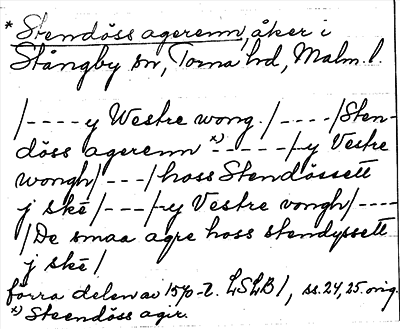 * Stendöss agerenn, åker i
Stångby sn, Torna hd, Malm. l.
/----y Westre wong. /----/Sten-
döss agerenn x)-----/-y Vestre
wongh/---/hoss Stendössett
j ské/---/-y Vestre vongh/----
/De smaa agre hoss stendyssett
j ské/
förra delen av 1570-t. LSLB1, ss. 24, 25. orig.
x) Steendöss agir.